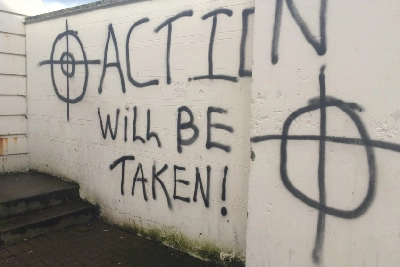 ACTION
WILL BE
TAKEN!